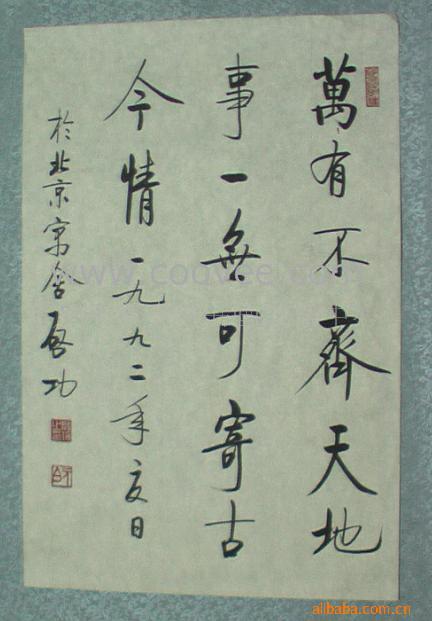 萬有不齊天地
事一無可寄古
今情 一九九二年夏日
於北京寓舍 啓功
www.coovee.com
alibaba.com.cn